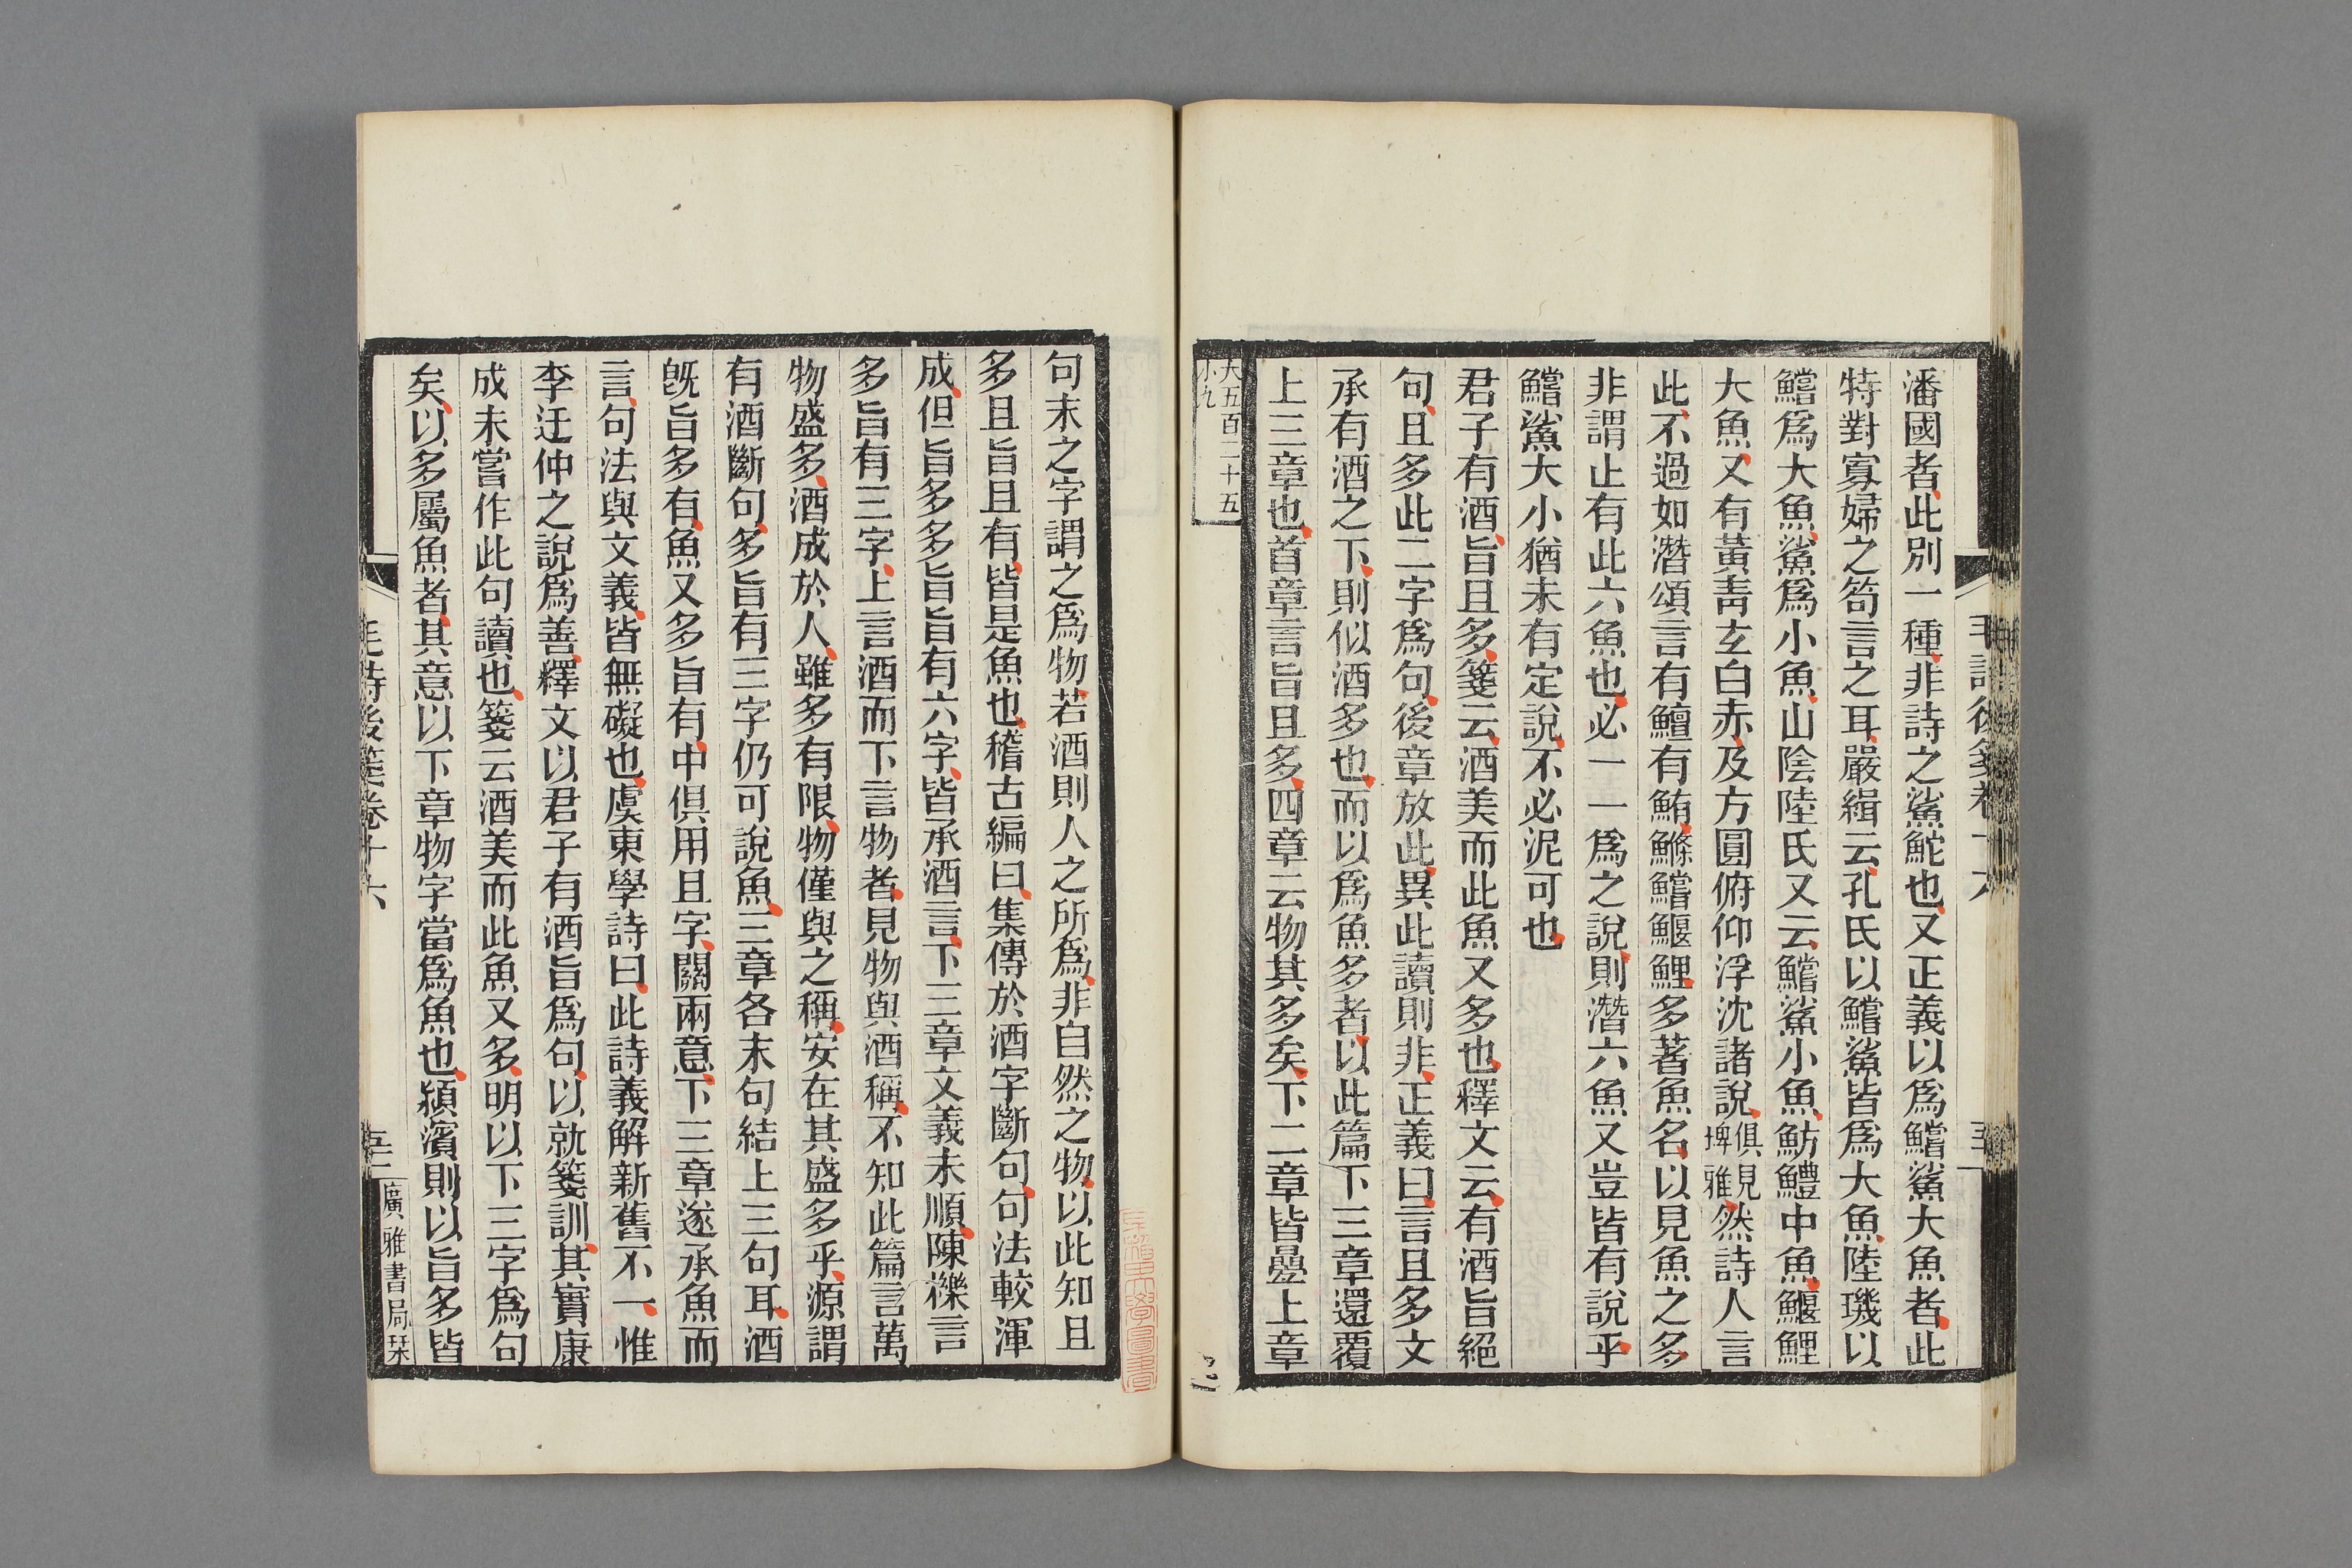 潘國者此別一種非詩之鯊鮀也又正義以爲鱨鯊大魚者此
特對寡婦之笱言之耳嚴緝云孔氏以鱨鯊皆爲大魚陸璣以
鱨爲大魚鯊爲小魚山陰陸氏又云鱨鯊小魚魴鱧中魚鰋鯉
大魚又有黃靑玄白赤及方圓俯仰浮沈諸說俱見埤雅然詩人言
此不過如潛頌言有鱣有鮪鰷鱨鰋鯉多著魚名以見魚之多
非謂止有此六魚也必一一爲之說則潛六魚又豈皆有說乎
鱨鯊大小猶未有定說不必泥可也
君子有酒旨且多箋云酒美而此魚又多也釋文云有酒旨絕
句且多此二字爲句後章放此異此讀則非正義曰言且多文
承有酒之下則似酒多也而以爲魚多者以此篇下三章還覆
上三章也首章言旨且多四章云物其多矣下二章皆疊上章
大五百二十五
小九
句末之字謂之爲物若酒則人之所爲非自然之物以此知且
多且旨且有皆是魚也稽古編曰集傳於酒字斷句句法較渾
成但旨多多旨旨有六字皆承酒言下三章文義未順陳櫟言
多旨有三字上言酒而下言物者見物與酒稱不知此篇言萬
物盛多酒成於人雖多有限物僅與之稱安在其盛多乎源謂
有酒斷句多旨有三字仍可說魚三章各末句結上三句耳酒
旣旨多有魚又多旨有中俱用且字關兩意下三章遂承魚而
言句法與文義皆無礙也虞東學詩曰此詩義解新舊不一惟
李迂仲之說爲善釋文以君子有酒旨爲句以就箋訓其實康
成未嘗作此句讀也箋云酒美而此魚又多明以下三字爲句
矣以多屬魚者其意以下章物字當爲魚也潁濱則以旨多皆
毛詩後箋卷十六
廣雅書局栞